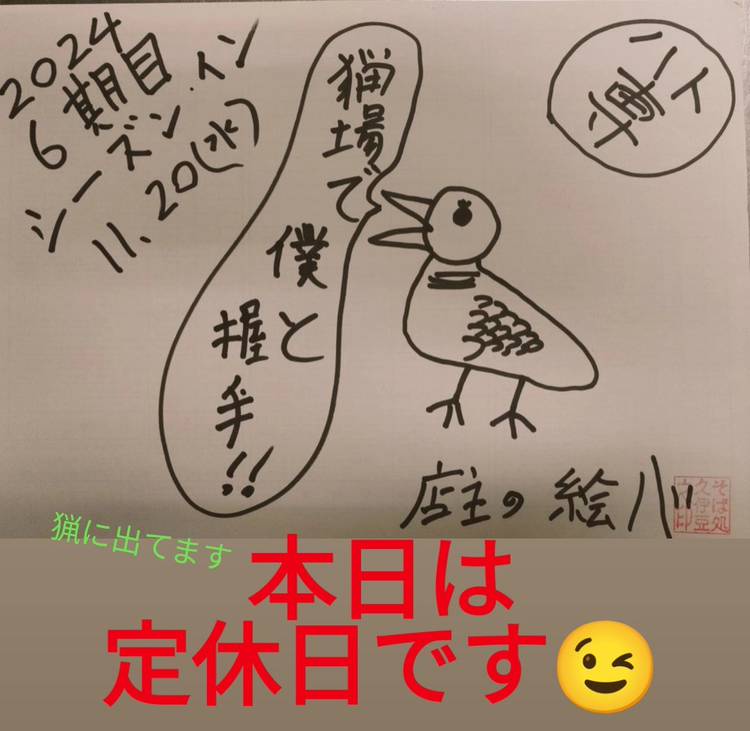 2024
6期目
シーズン.イン
11.20(水)
猟場で
僕と
握手!!
店主の絵
そば処
久伊豆
猟に出てます
本日は
定休日です😉